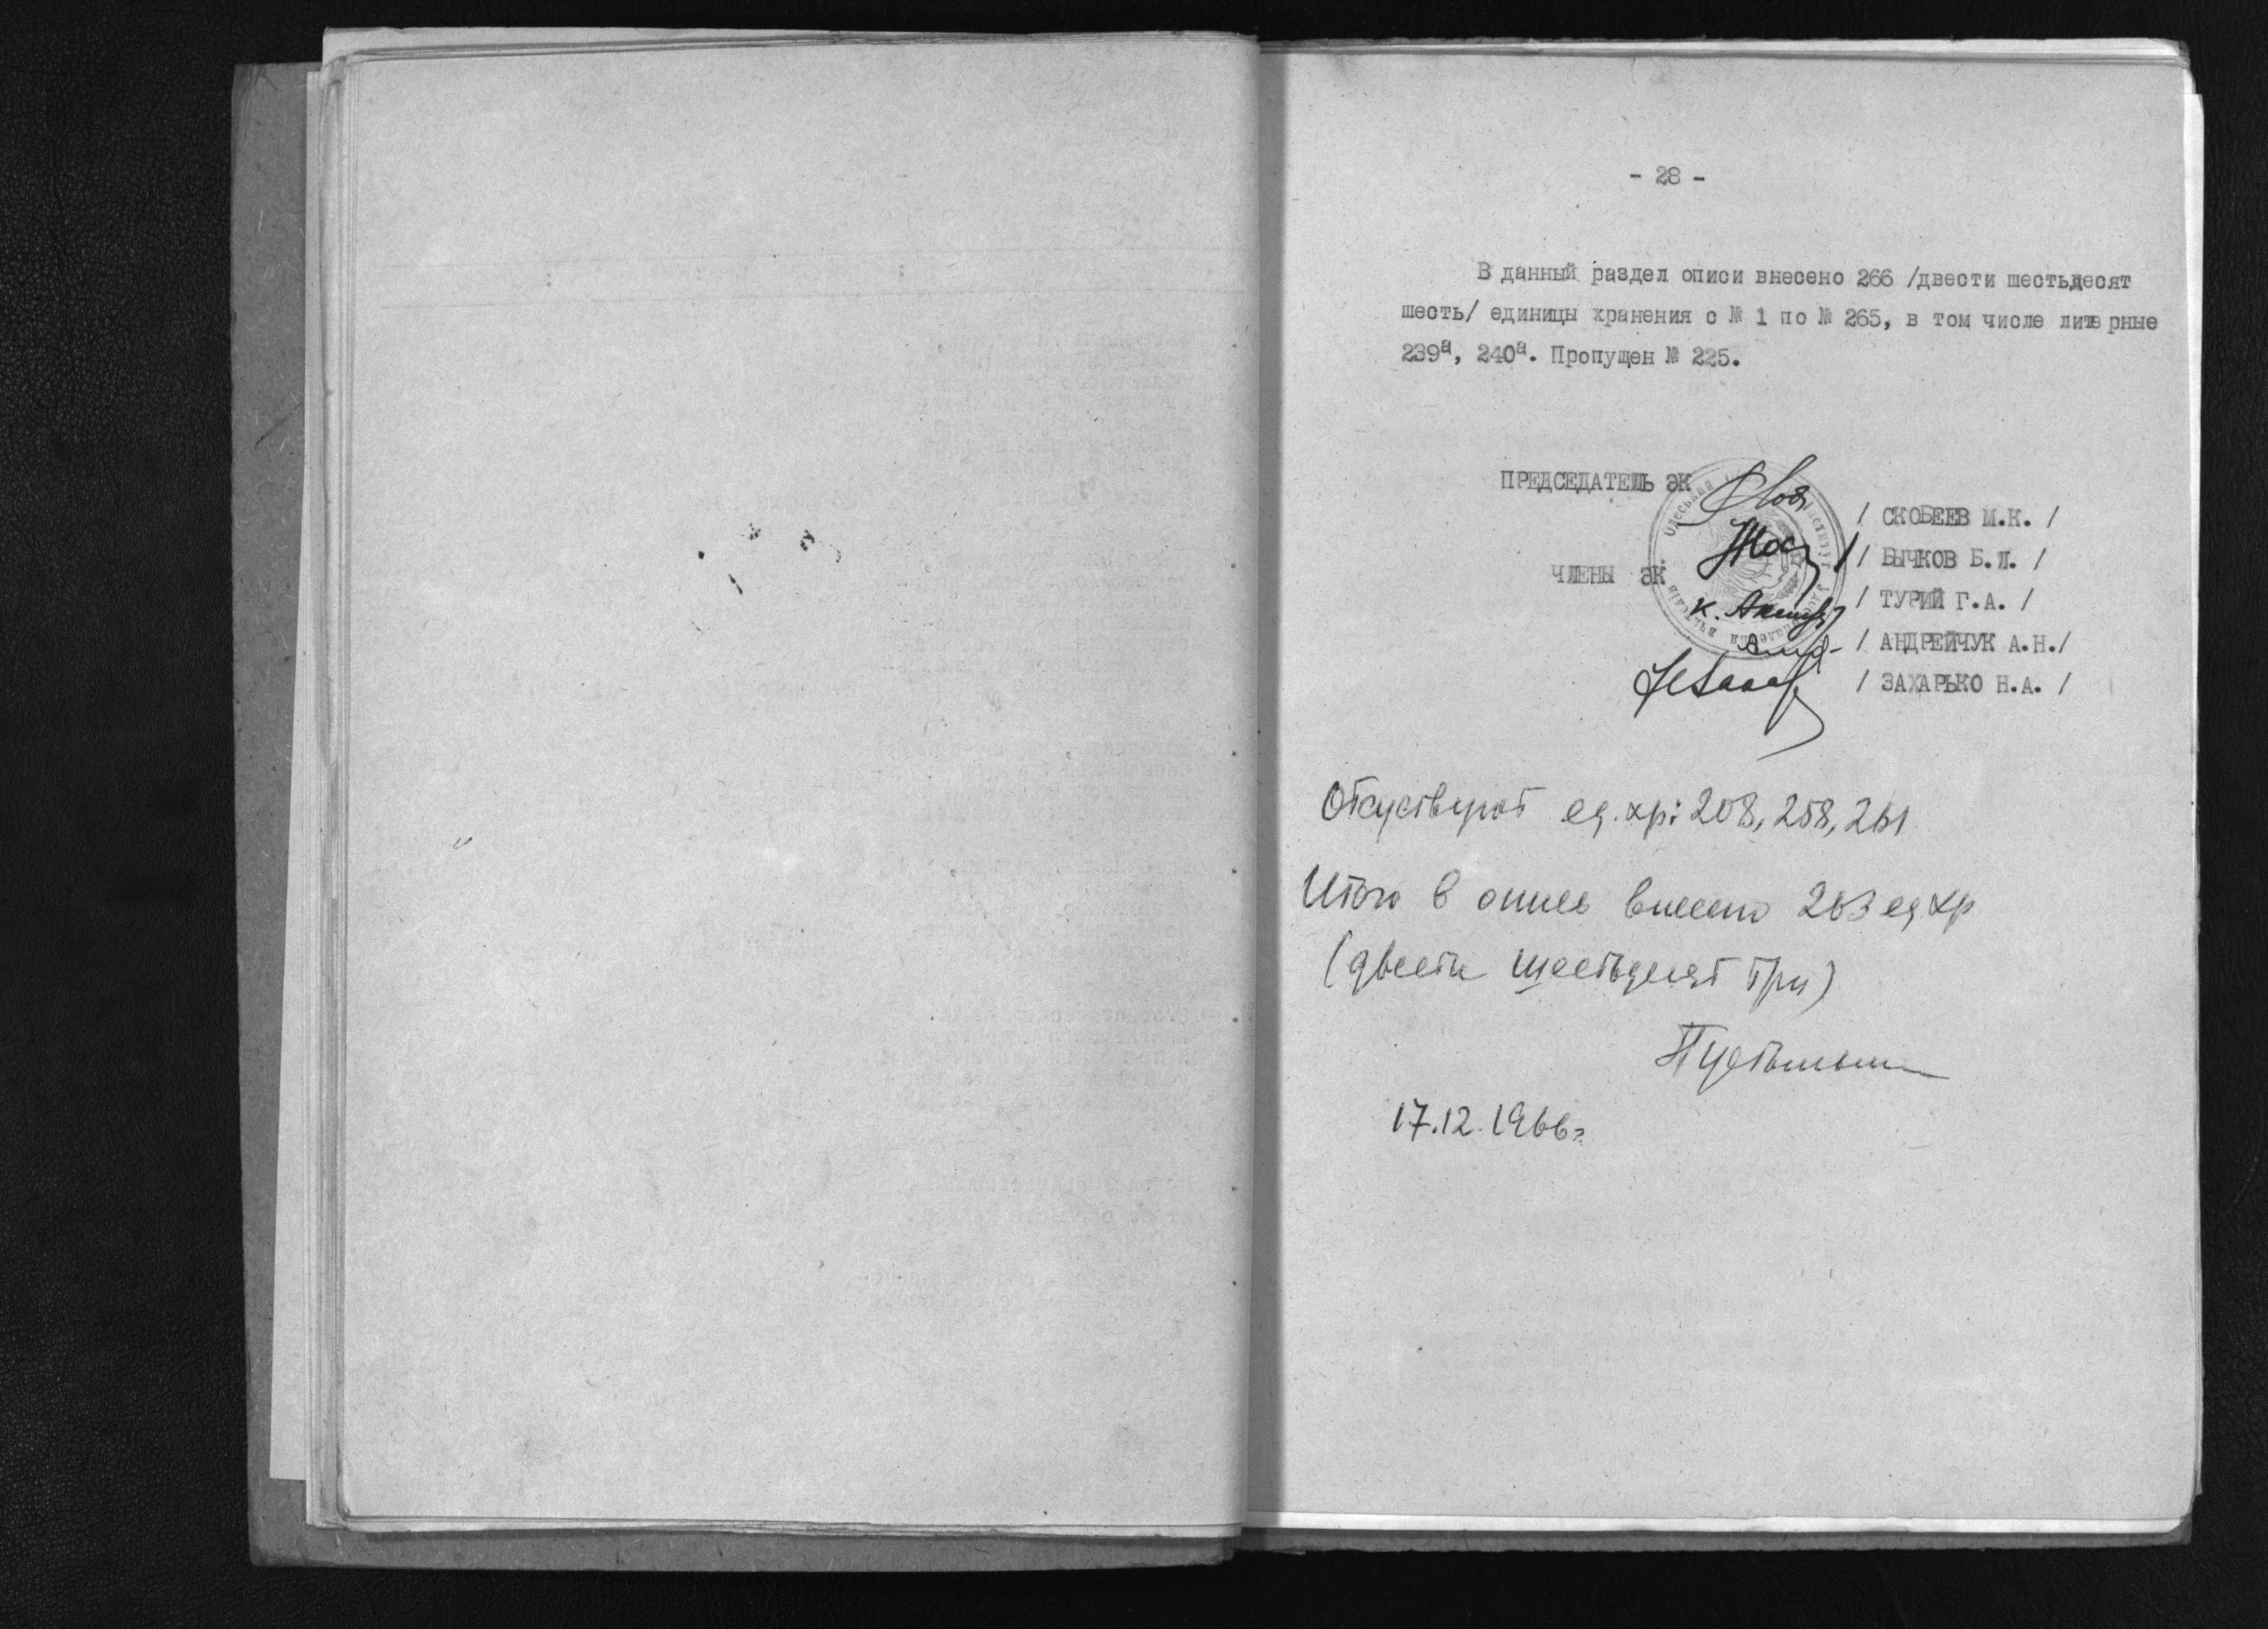 - 28 -
В данный раздел описи внесено 266 /двести шестьдесят
шесть/ единицы хранения с № 1 по № 265, в том числе литерные
239а, 240а. Пропущен № 225.
ПРЕДСЕДАТЕЛЬ ЭК
/ СКОБЕЕВ М.К. /
/ БЫЧКОВ Б.И. /
ЧЛЕНЫ ЭК
/ ТУРИЙ Г.А. /
/ АНДРЕЙЧУК А.Н./
/ ЗАХАРЬКО Н.А. /
Отсуствуют ед. хр: 208, 258, 261
Итого в опись внесено 263 ед хр
(двести шестьдесят три)
17.12.1966г